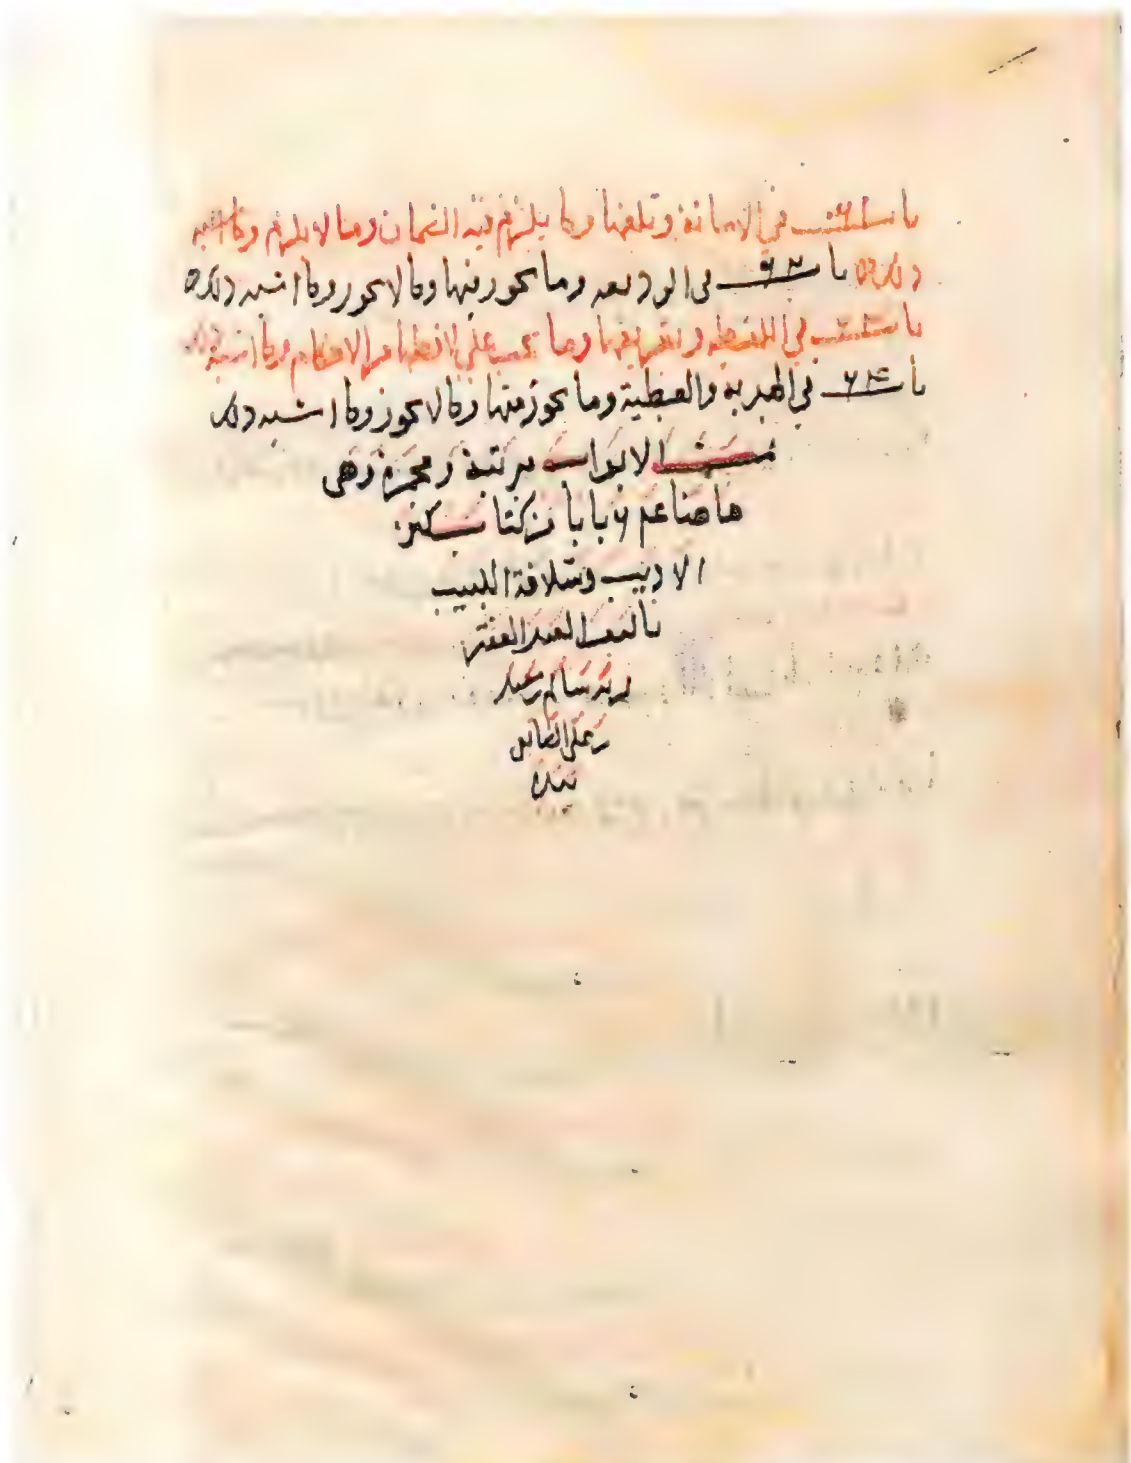 باب في الامانة وتلفها وما يلزم فيه الضمان وما لا يلزم وما اشبه
ذلك باب ٦٢ في الوديعه وما يجوز فيها وما لا يجوز وما اشبه ذلك
باب في اللقطه وتعريفها وما يجب على لاقطها من الاحكام وما اشبه ذلك
باب ٦٤ في الهدية والعطية وما يجوز منها وما لا يجوز وما اشبه ذلك
تمت الابواب مرتبة وهي
هاهنا ٦ بابا من كتاب كنز
الاديب وسلافة اللبيب
تاليف العبد الفقير
سالم